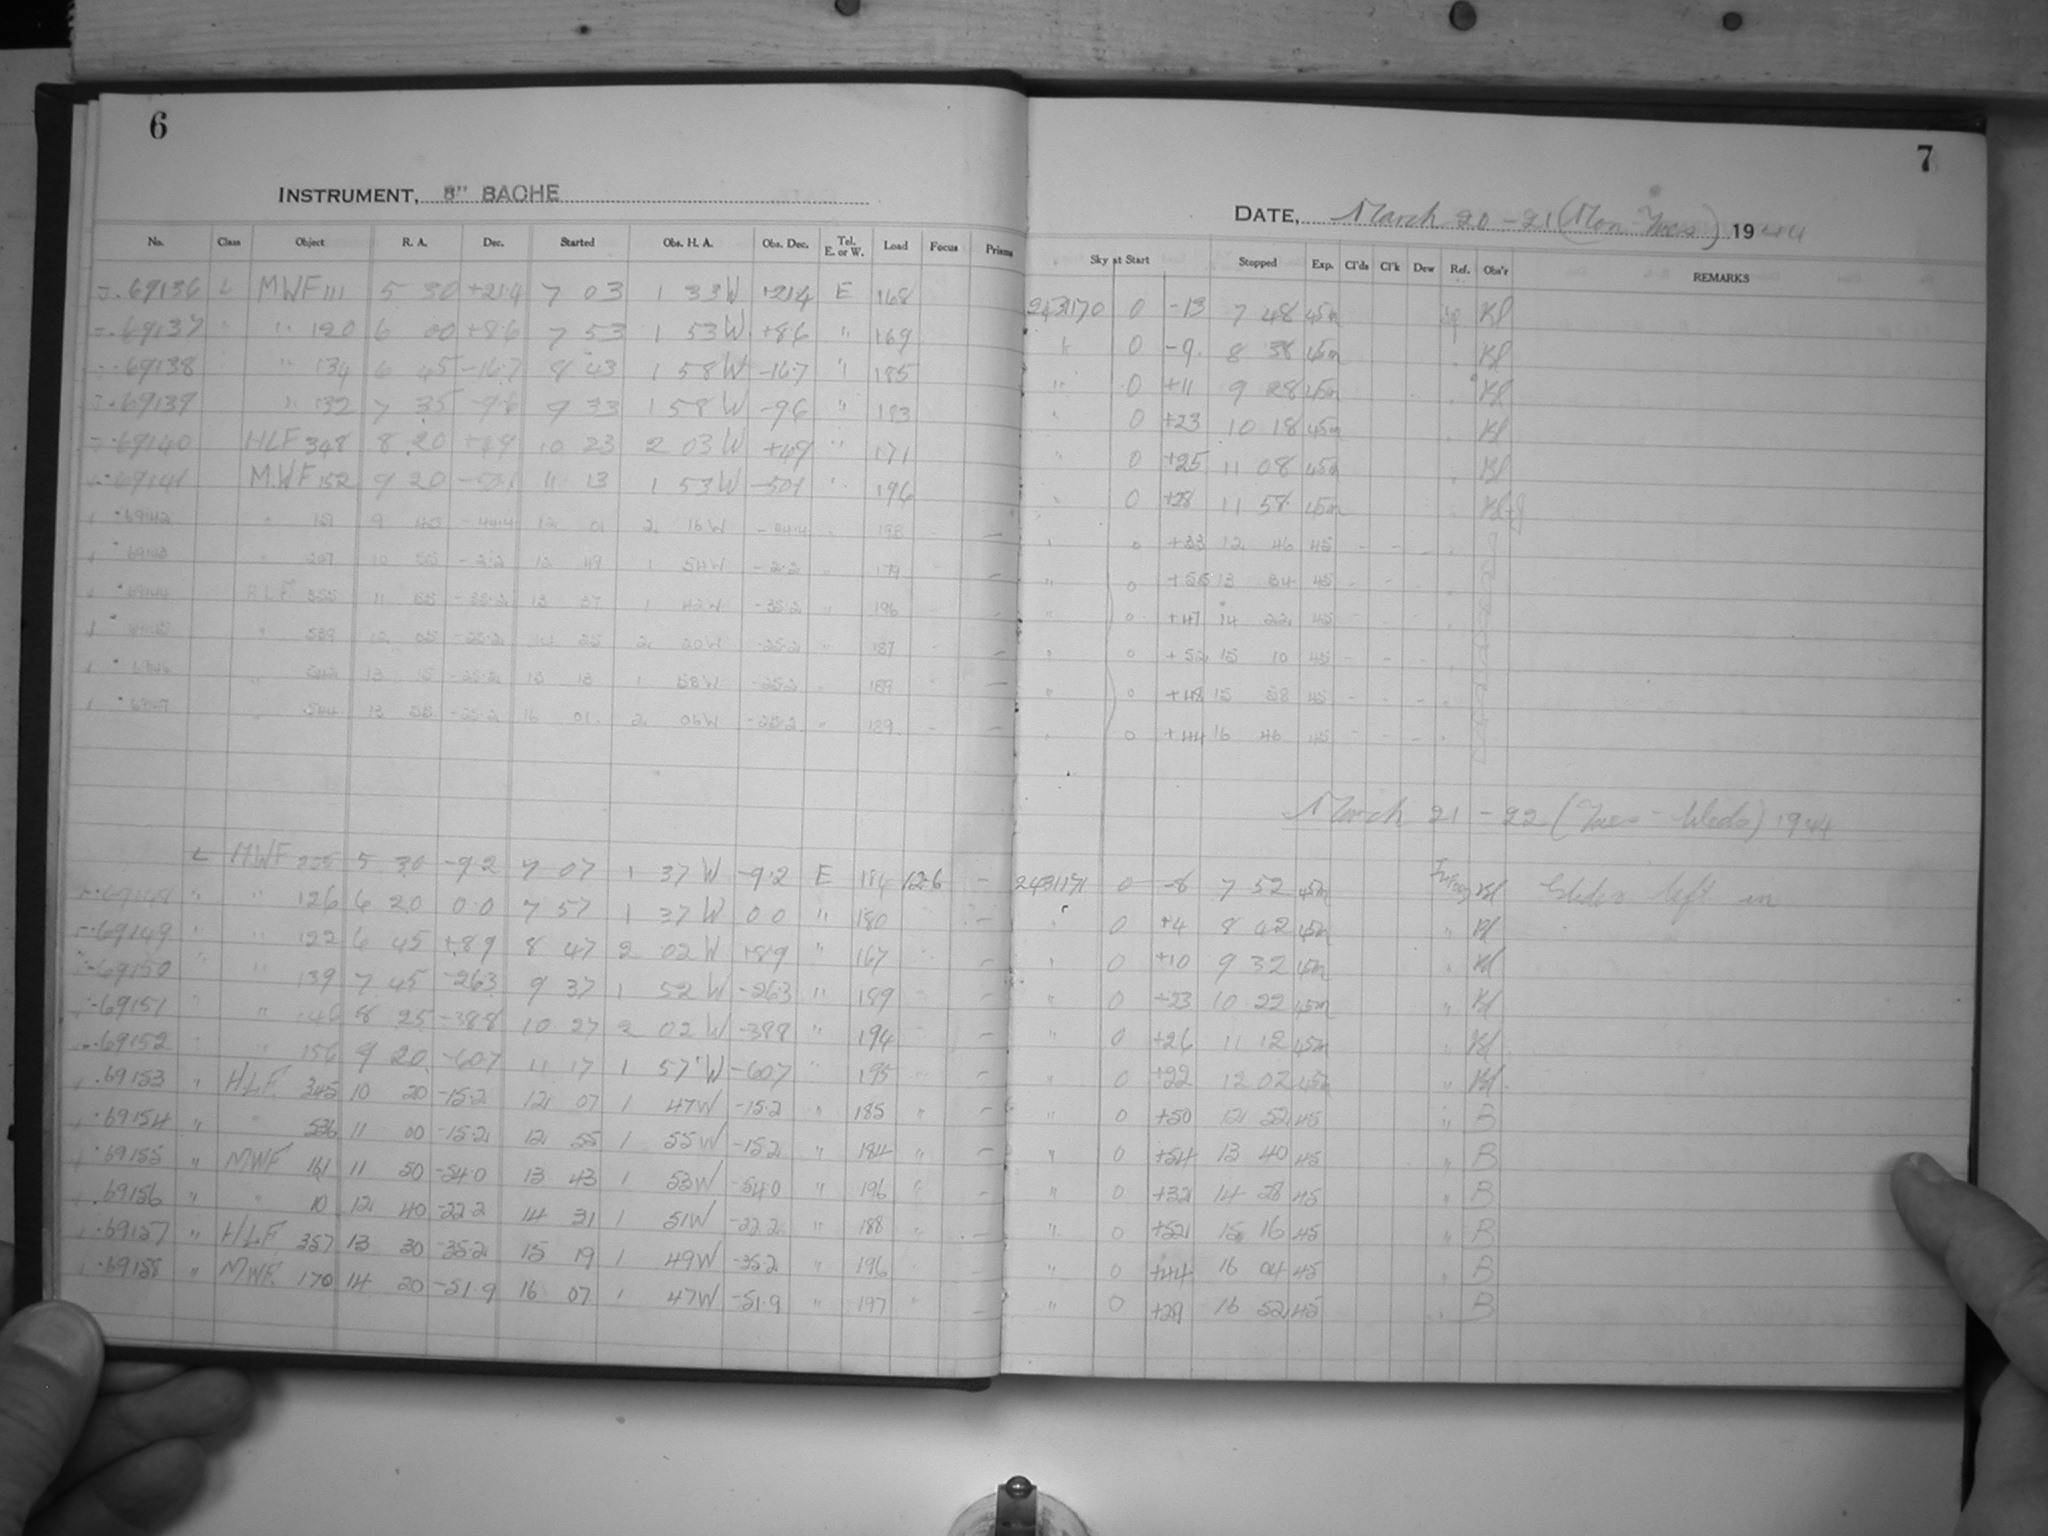 6
7
INSTRUMENT, 8" BACHE
DATE, March 20-21 (Mon Tues) 1944
No. Class Object R. A. Dec. Started Obs. H. A. Obs. Dec. Tel. E. or W. Load Focus Prisms Sky at Start Stopped Exp. Cl'ds Cl'k Dew Ref. Obs'r REMARKS
69136 L MWF 111 5 30 +21.4 7 03 1 33W +21.4 E 168 0 -13 7 48 45m Bl
69137 " 120 6 00 +8.6 7 53 1 53W +8.6 " 169 " 0 -9 8 38 45m Bl
69138 " 134 6 45 -16.7 8 43 1 58W -16.7 " 185 " 0 +11 9 28 45m Bl
69139 " 132 7 35 -9.6 9 33 1 58W -9.6 " 183 " 0 +23 10 18 45m Bl
69140 HLF 348 8 20 10 23 2 03W " 171 " 0 +25 11 08 45m Bl
69141 MWF 152 9 20 11 13 1 53W " 196 " 0 +28 11 58 45m
69142 " 151 9 45 -44.4 12 01 2 16W -44.4 " 198 - " 0 +33 12 46 45 - - -
69143 " 10 55 -2.2 12 49 1 54W -2.2 " 179 - " 0 13 34 45 - - -
69144 HLF 355 11 55 -35.2 13 37 1 42W -35.2 " 196 - " 0 +47 14 22 45 - - -
539 12 05 -25.2 14 25 2 20W -25.2 " 187 - " 0 +52 15 10 45 - - -
69146 " 542 13 15 -25.2 15 13 1 58W -25.2 " 189 - " 0 +48 15 58 45 - - -
" 544 13 55 -25.2 16 01 2 06W -25.2 " 189 - " 0 +44 16 46 45 - - -
March 21-22 (Tues-Weds) 1944
L MWF 205 5 30 -9.2 7 07 1 37W -9.2 E 184 12.6 - 2431171 0 -8 7 52 45m Bl left in
69148 " " 126 6 20 0.0 7 57 1 37W 0.0 " 180 - " 0 +4 8 42 45m " Bl
69149 " " 122 6 45 +8.9 8 47 2 02W +8.9 " 167 - " 0 +10 9 32 45m " Bl
69150 " " 139 7 45 -26.3 9 37 1 52W -26.3 " 189 - " 0 +23 10 22 45m " Bl
69151 " " 146 8 25 -38.8 10 27 2 02W -38.8 " 194 - " 0 +26 11 12 45m " Bl
69152 " " 156 9 20 -60.7 11 17 1 57W -60.7 " 195 - " 0 +22 12 02 45m " Bl
69153 " HLF 345 10 20 -15.2 12 07 1 47W -15.2 " 185 " - " 0 +50 12 52 45 " B
69154 " " 536 11 00 -15.2 12 55 1 55W -15.2 " 184 " - " 0 +54 13 40 45 " B
69155 " MWF 161 11 50 -54.0 13 43 1 53W -54.0 " 196 " - " 0 +32 14 28 45 " B
69156 " " 10 12 40 -22.2 14 31 1 51W -22.2 " 188 " - " 0 +52 15 16 45 " B
69157 " HLF 357 13 30 -35.2 15 19 1 49W -35.2 " 196 " - " 0 +44 16 04 45 " B
69158 " MWF 170 14 20 -51.9 16 07 1 47W -51.9 " 197 " - " 0 +29 16 52 45 " B